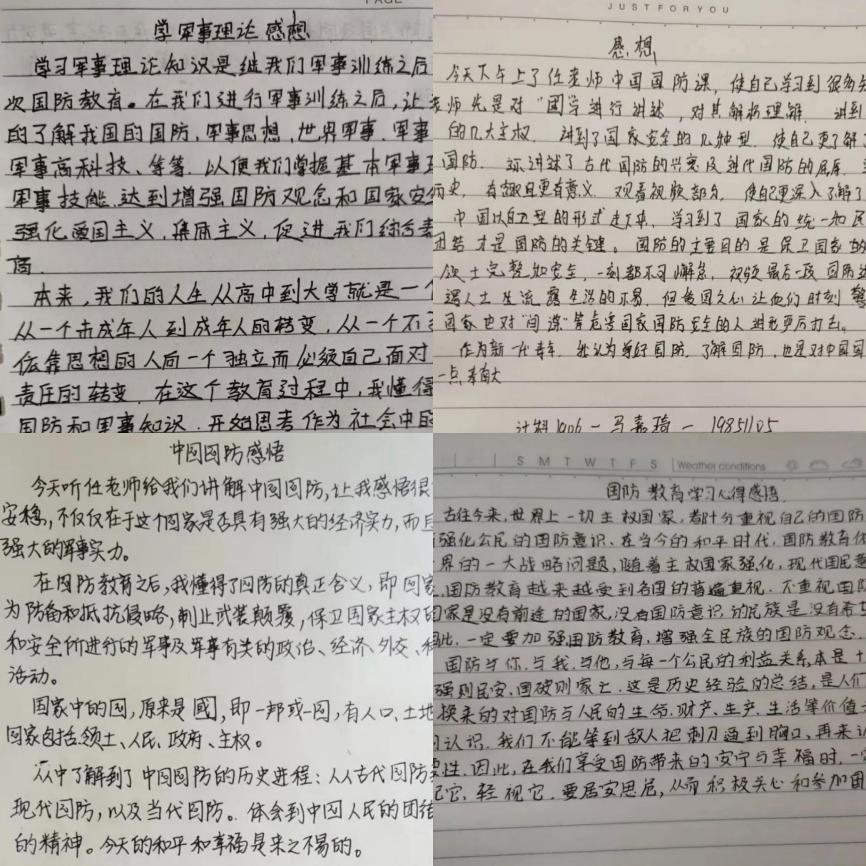 PAGE
学军事理论感想
学习军事理论知识是继我们军事训练之后
次国防教育。在我们进行军事训练之后,让
的了解我国的国防、军事思想、世界军事、军事
军事高科技、等等。以便我们掌握基本军事理
军事技能,达到增强国防观念和国家安全
强化爱国主义,集体主义,促进我们综合素
高.
本来,我们的人生从高中到大学就是一个
从一个未成年人到成年人的转变,从一个不
依靠思想的人向一个独立而必须自己面对
责任的转变.在这个教育过程中,我懂得
国防和军事知识.开始思考作为社会中的
JUST FOR YOU
感想
今天下午上了任老师中国国防课,使自己学习到很多知
老师先是对“国”字进行讲述,对其解析理解.讲到
的几大主权.讲到了国家安全的几种型.使自己更了解了
国防.还讲述了古代国防的兴衰及近代国防的屈辱.
历史,有趣且更有意义.观看视频部分,使自己更深入了解了
中国以自卫型的形式走下来,学习到了国家的统一和民
团结才是国防的关键。国防的主要目的是保卫国家的
领土完整和安全,一刻都不可懈怠,视频最后一段国防
人士生活的不易,但爱国之心让他们时刻警
国家也对“间谍”等危害国家国防安全的人进行严厉打击。
作为新一代青年.我认为学好国防.了解国防,也是对中国国
一点奉献
计科1906-马嘉琦-19851105
中国国防感悟
今天听任老师给我们讲解中国国防,让我感悟很
安稳,不仅仅在于这个国家是否具有强大的经济实力,而且
强大的军事实力。
在国防教育之后,我懂得了国防的真正含义,即国家
为防备和抵抗侵略,制止武装颠覆,保卫国家主权的
和安全所进行的军事及军事有关的政治、经济、外交、科
活动。
国家中的国,原来是國,即一邦或一囻,有人口、土地
国家包括领土、人民、政府、主权。
从中了解到了中国国防的历史进程:从古代国防
现代国防,以及当代国防。体会到中国人民的团结
的精神。今天的和平和幸福是来之不易的。
S M T W T F S Weather conditions
国防教育学习心得感悟.
古往今来,世界上一切主权国家,都十分重视自己的国防
强化公民的国防意识、在当今的和平时代,国防教育依
界的一大战略问题,随着主权国家强化,现代国民意
国防教育越来越受到各国的普遍重视.不重视国防
国家是没有前途的国家,没有国防意识的民族是没有希望
此.一定要加强国防教育,增强全民族的国防观念.
国防与你.与我.与他,与每一个公民的利益关系,本是十
强则民安.国破则家亡.这是历史经验的总结,是人们
换来的对国防与人民的生命.财产、生产、生活等价值
认识.我们不能等到敌人把刺刀逼到胸口,再来认
要性.因此,在我们享受国防带来的安宁与幸福时.一定
记它.轻视它.要居安思危,从而积极关心和参加国